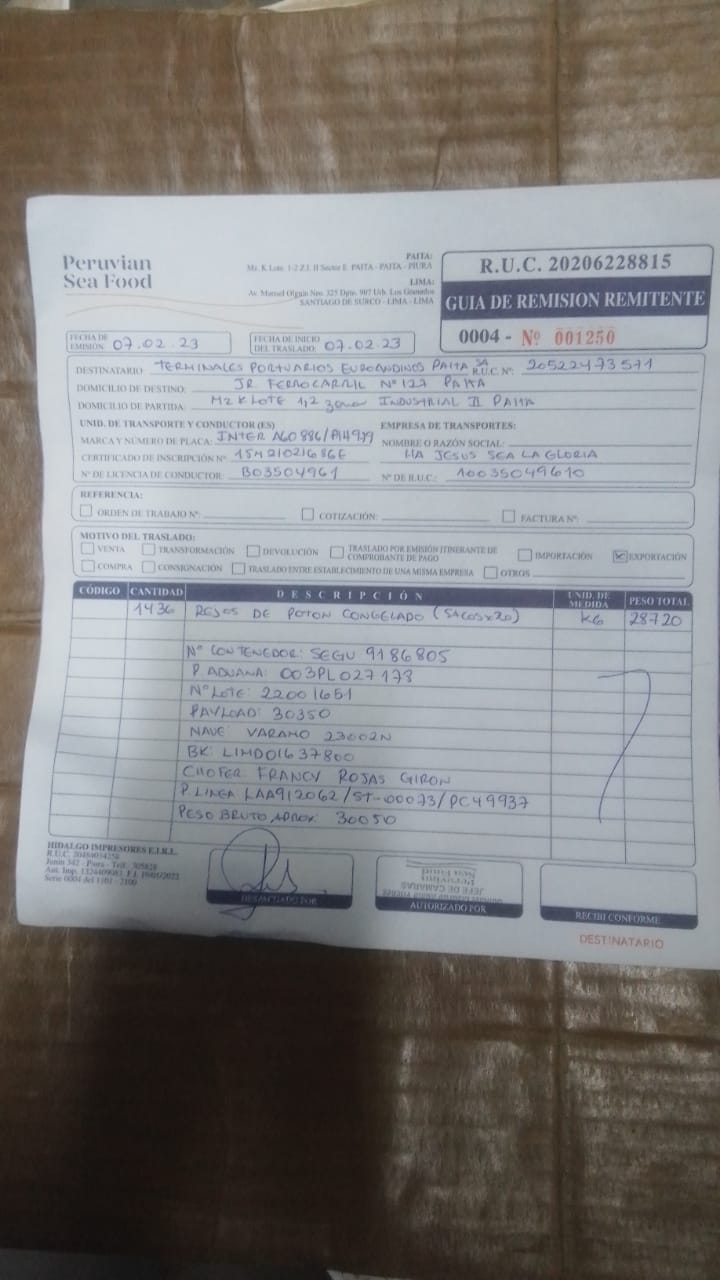 Peruvian
Sea Food
PAITA:
Mz. K Lote. 1-2 Z.I. II Sector E. PAITA - PAITA - PIURA
LIMA:
Av. Manuel Olguin Nro. 325 Dpto. 907 Urb. Los Granados
SANTIAGO DE SURCO - LIMA - LIMA
R.U.C. 20206228815
GUIA DE REMISION REMITENTE
0004 - Nº 001250
FECHA DE EMISIÓN 07.02.23
FECHA DE INICIO DEL TRASLADO: 07.02.23
DESTINATARIO: TERMINALES PORTUARIOS EUROANDINOS PAITA SA R.U.C. Nº: 20522473571
DOMICILIO DE DESTINO: JR FERROCARRIL Nº 127 PAITA
DOMICILIO DE PARTIDA: MZ K LOTE 1,2 zona INDUSTRIAL II PAITA
UNID. DE TRANSPORTE Y CONDUCTOR (ES)
EMPRESA DE TRANSPORTES:
MARCA Y NUMERO DE PLACA: INTER A60886/
NOMBRE O RAZÓN SOCIAL:
CERTIFICADO DE INSCRIPCIÓN Nº: 15M21021686E
MA JESUS SEA LA GLORIA
Nº DE LICENCIA DE CONDUCTOR: B03504961
Nº DE R.U.C.: 10035049610
REFERENCIA:
ORDEN DE TRABAJO Nº:
COTIZACIÓN:
FACTURA Nº:
MOTIVO DEL TRASLADO:
VENTA TRANSFORMACIÓN DEVOLUCIÓN TRASLADO POR EMISIÓN ITINERANTE DE COMPROBANTE DE PAGO IMPORTACIÓN EXPORTACIÓN
COMPRA CONSIGNACIÓN TRASLADO ENTRE ESTABLECIMIENTO DE UNA MISMA EMPRESA OTROS
CÓDIGO CANTIDAD DESCRIPCIÓN UNID. DE MEDIDA PESO TOTAL
1436 REJOS DE POTON CONGELADO (SACOSx20) KG 28720
Nº CONTENEDOR: SEGU 9186805
P. ADUANA: 003PL027178
Nº LOTE: 22001651
PAYLOAD: 30350
NAVE: VARAMO 23002N
BK: LIMD01637800
CHOFER FRANCY ROJAS GIRON
P LINEA LAA912062/ST-00073/PC49937
PESO BRUTO APROX: 30050
HIDALGO IMPRESORES E.I.R.L.
Junin 342 - Piura - Telf. 305828
Serie 0004 del 1101 - 2100
DESPACHADO POR
Peruvian
Sea Food
JEFE DE CAMARAS
AUTORIZADO POR
RECIBI CONFORME
DESTINATARIO